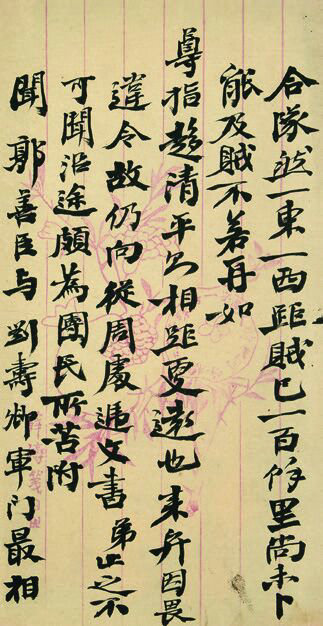 合隊然一東一西距賊已一百餘里尚未卜
能及賊不若再如
尊指趨清平相距更遠也來弁因畏
違令故仍向從周處遞文書弟止之不
可聞沿途頗為團民所苦附
聞郭善臣与劉壽卿軍门最相